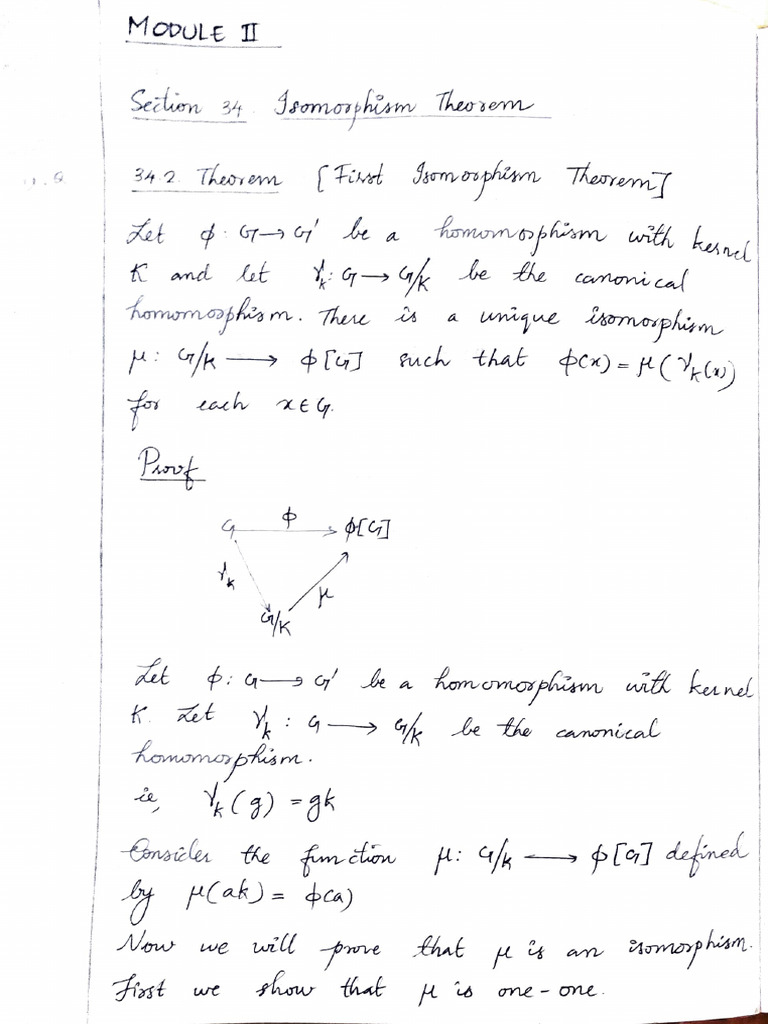 MODULE II
Section 34. Isomorphism Theorem
34.2. Theorem [First Isomorphism Theorem]
Let ϕ: G→G' be a homomorphism with kernel
K and let γₖ: G→G/K be the canonical
homomorphism. There is a unique isomorphism
μ: G/K ⟶ ϕ[G] such that ϕ(x) = μ(γₖ(x)
for each x∈G.
Proof
G ϕ ϕ[G]
γₖ μ
G/K
Let ϕ: G⟶G' be a homomorphism with kernel
K. Let γₖ : G ⟶ G/K be the canonical
homomorphism.
ie, γₖ(g) = gk
Consider the function μ: G/K ⟶ ϕ[G] defined
by μ(ak) = ϕ(a)
Now we will prove that μ is an isomorphism.
First we show that μ is one-one.